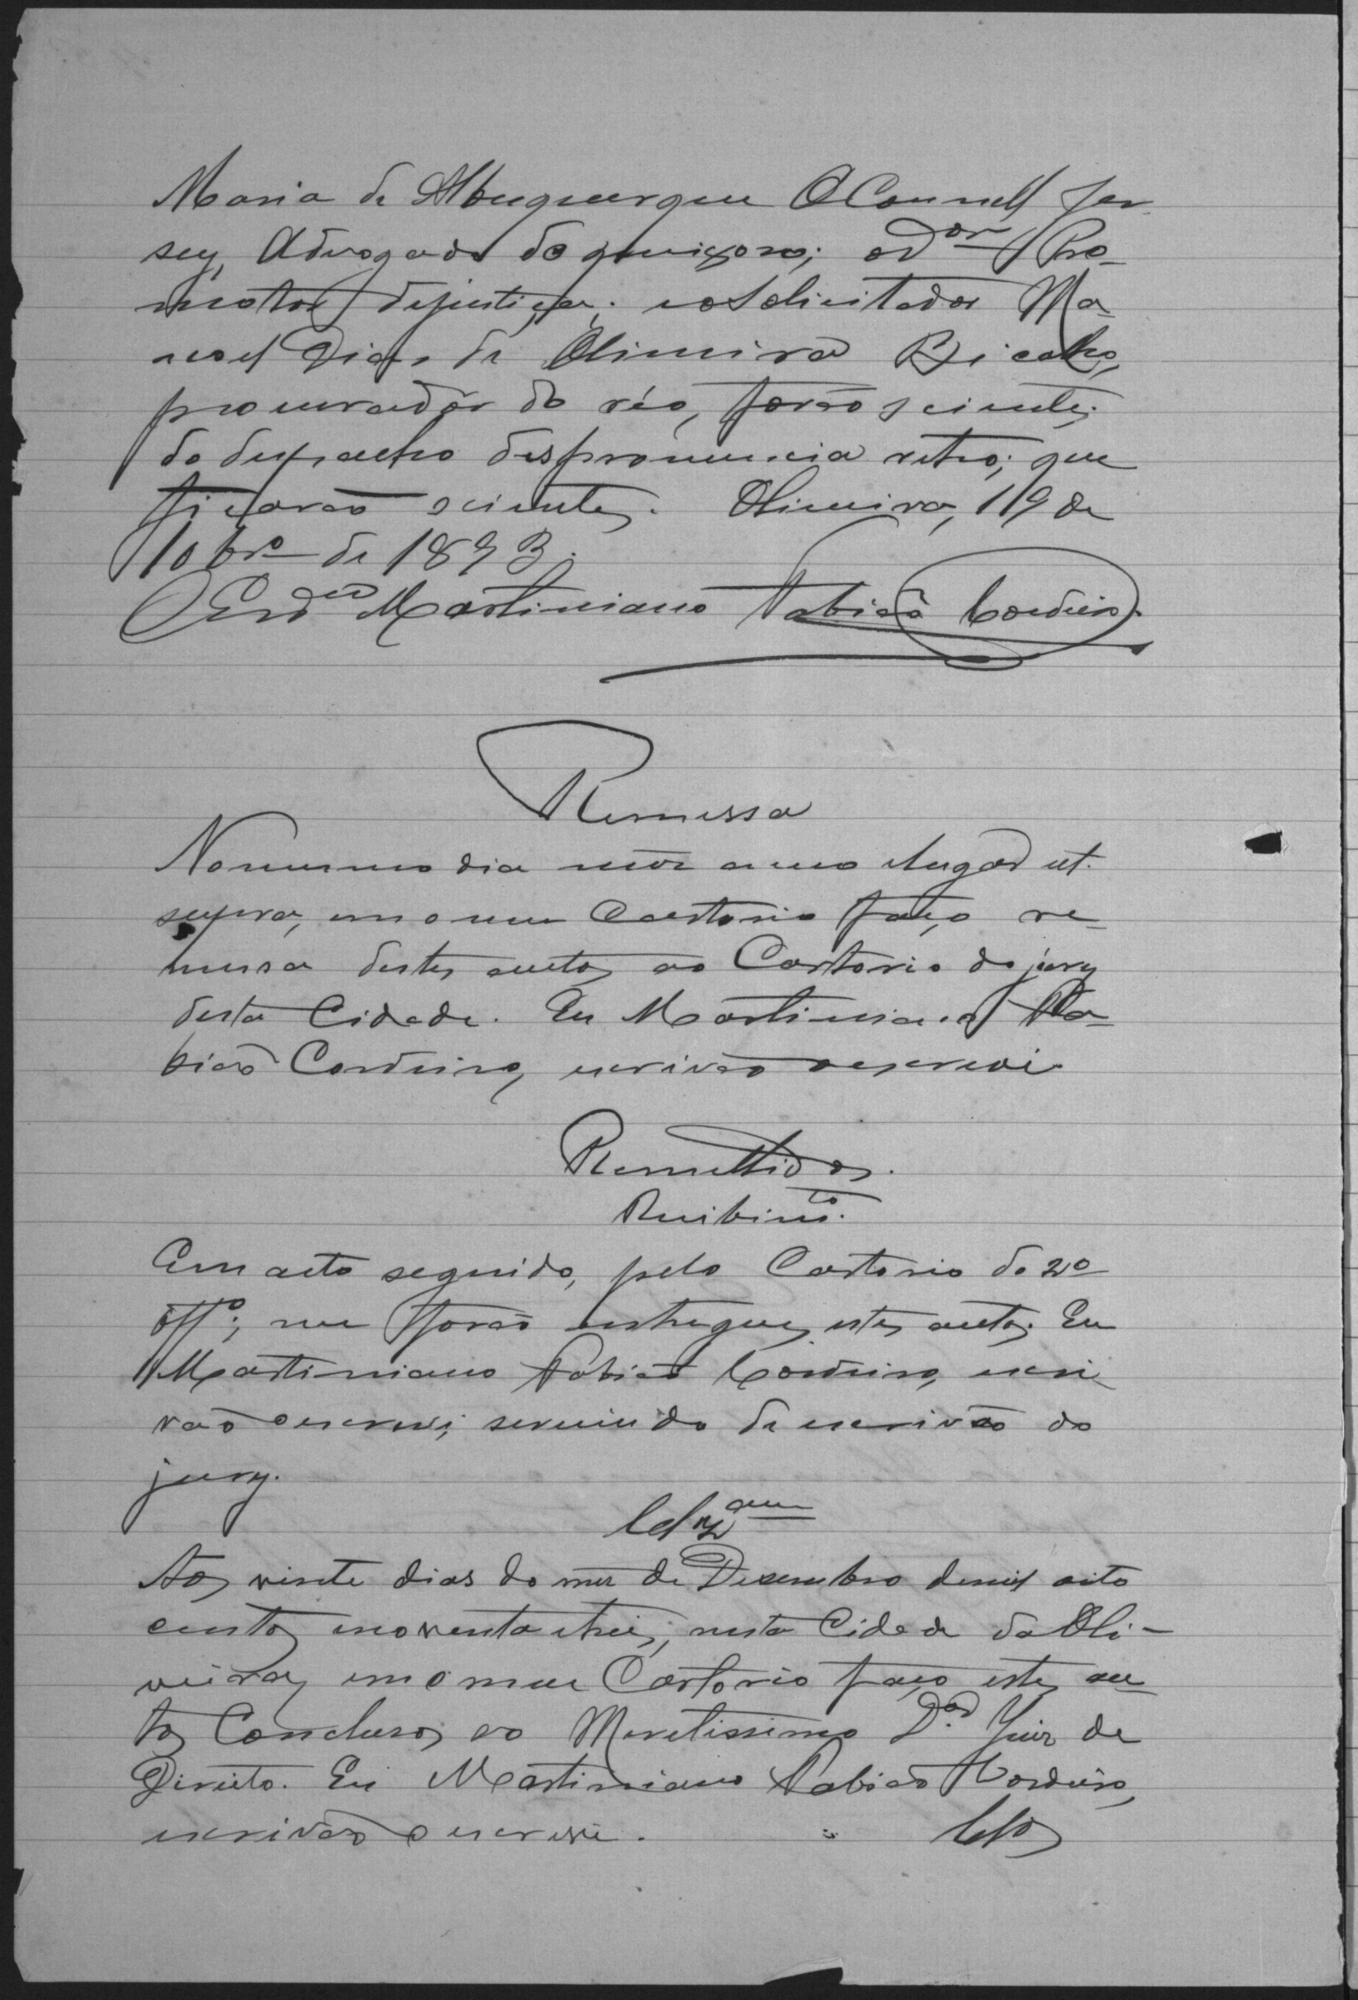 Maria de Albuquerque O Connell Jer-
sey, Advogado do queixoso; o Dor Pro-
motor dejustiça; eoSolicitador Ma-
noel Dias de Oliveira Bicalho,
procurador do réo, forão scientes
do despacho despronuncia retro; que
ficarão scientes. Oliveira, 19 de
10brº de 1893.
O Escram Martiniano Fabião Cordeiro.
Remessa
Nomesmo dia mez anno elugar ut
supra, em o meu Cartorio faço re-
messa destes autos ao Cartorio do jury
desta Cidade. Eu Martiniano Fa-
bião Cordeiro, escrivão oescrevi
Remettidos.
Recebimto.
Em acto seguido, pelo Cartorio do 2º
offº; me forão entregues estes autos. Eu
Martiniano Fabião Cordeiro, escri-
vão oescrevi, servindo de escrivão do
jury.
Clzam
Aos vinte dias do mez de Dezembro demil oito
centos enoventa etrez, nesta Cidade da Oli-
veira, em o meu Cartorio faço estes au-
tos Conclusos ao Meretissimo Dor Juiz de
Direito. Eu Martiniano Fabião Cordeiro,
escrivão o escrevi. Clos